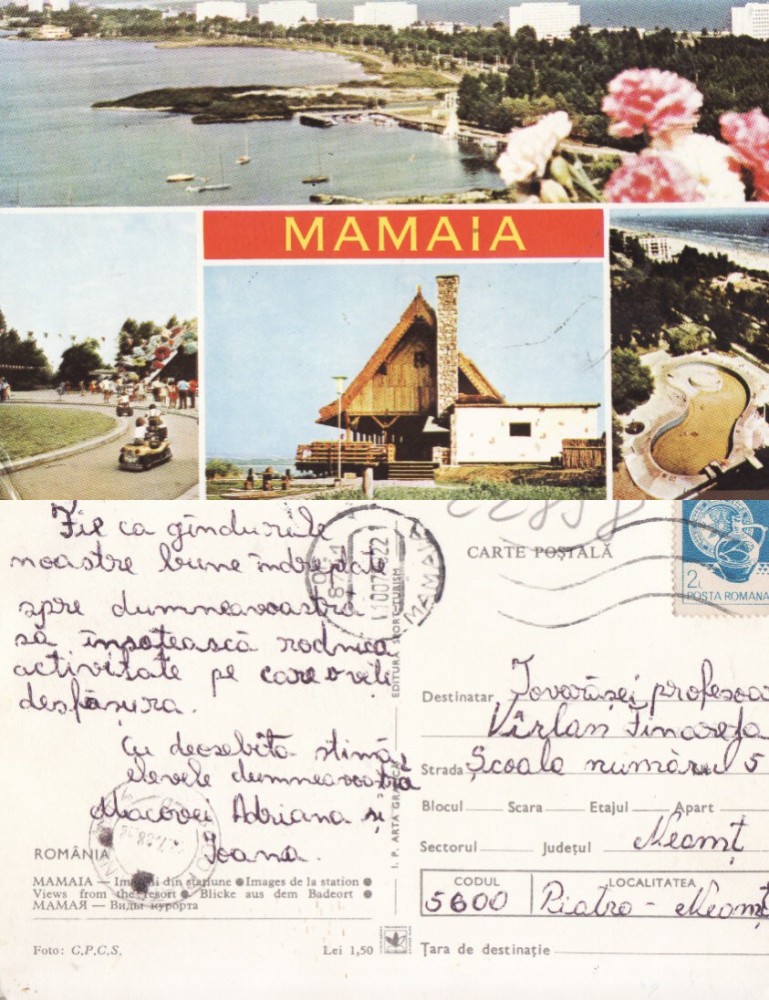 MAMAIA
Fie ca gîndurile
noastre bune îndreptate
spre dumneavoastră
să însoțească rodnica
activitate pe care o veți
desfășura.
Cu deosebită stimă
elevele dumneavoastră
Macovei Adriana și
Ioana.
ROMÂNIA
MAMAIA — Imagini din stațiune ● Images de la station ●
Views from the resort ● Blicke aus dem Badeort ●
МАМАЯ — Виды курорта
Foto: C.P.C.S.
Lei 1,50
EDITURA SPORT-TURISM
I. P. ARTA GRAFICĂ
MAMAIA
CARTE POȘTALĂ
2
POSTA ROMANA
Destinatar Tovarășei profesoa
Vîrlan Tinareta
Strada Școala numărul 5
Blocul Scara Etajul Apart
Sectorul Județul Neamț
CODUL LOCALITATEA
5600 Piatra - Neamț
Țara de destinație